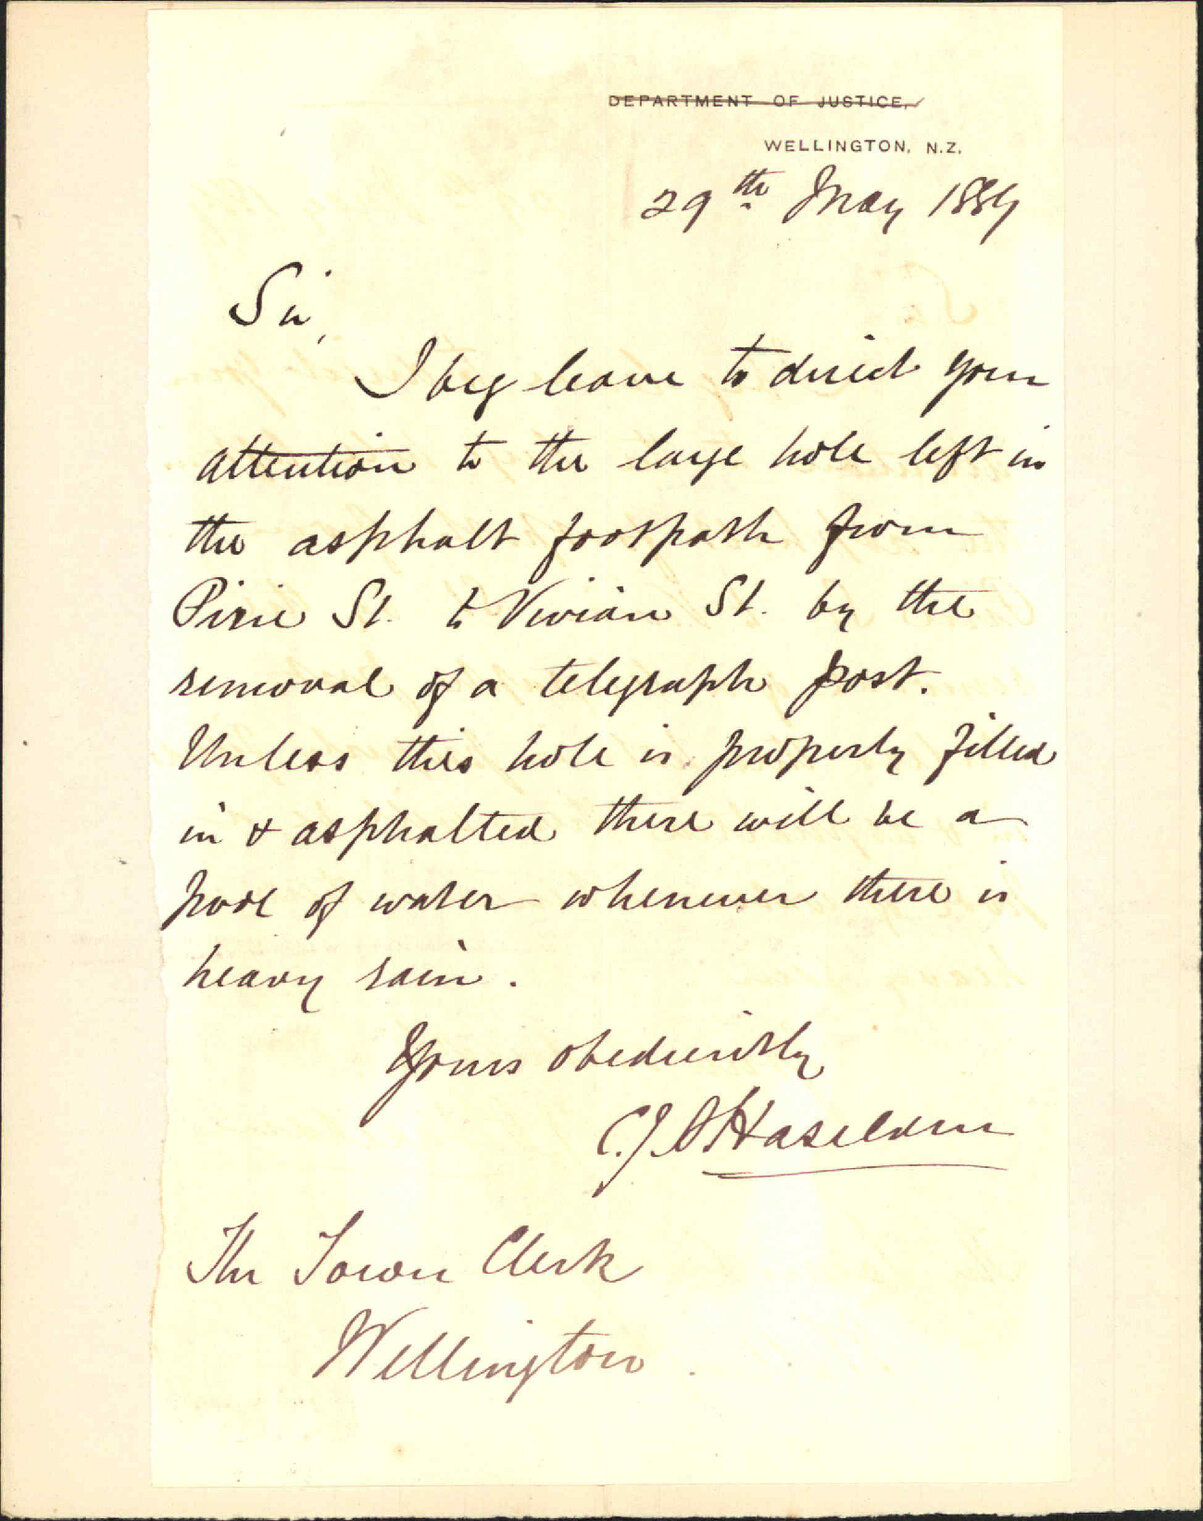 DEPARTMENT OF JUSTICE,
WELLINGTON, N.Z.
29th May 1889
Sir,
I beg leave to direct your
attention to the large hole left in
the asphalt footpath from
Pirie St. to Vivian St. by the
removal of a telegraph post.
Unless this hole is properly filled
in & asphalted there will be a
pool of water whenever there is
heavy rain.
Yours obediently
C.J.A Haselden
The Town Clerk
Wellington